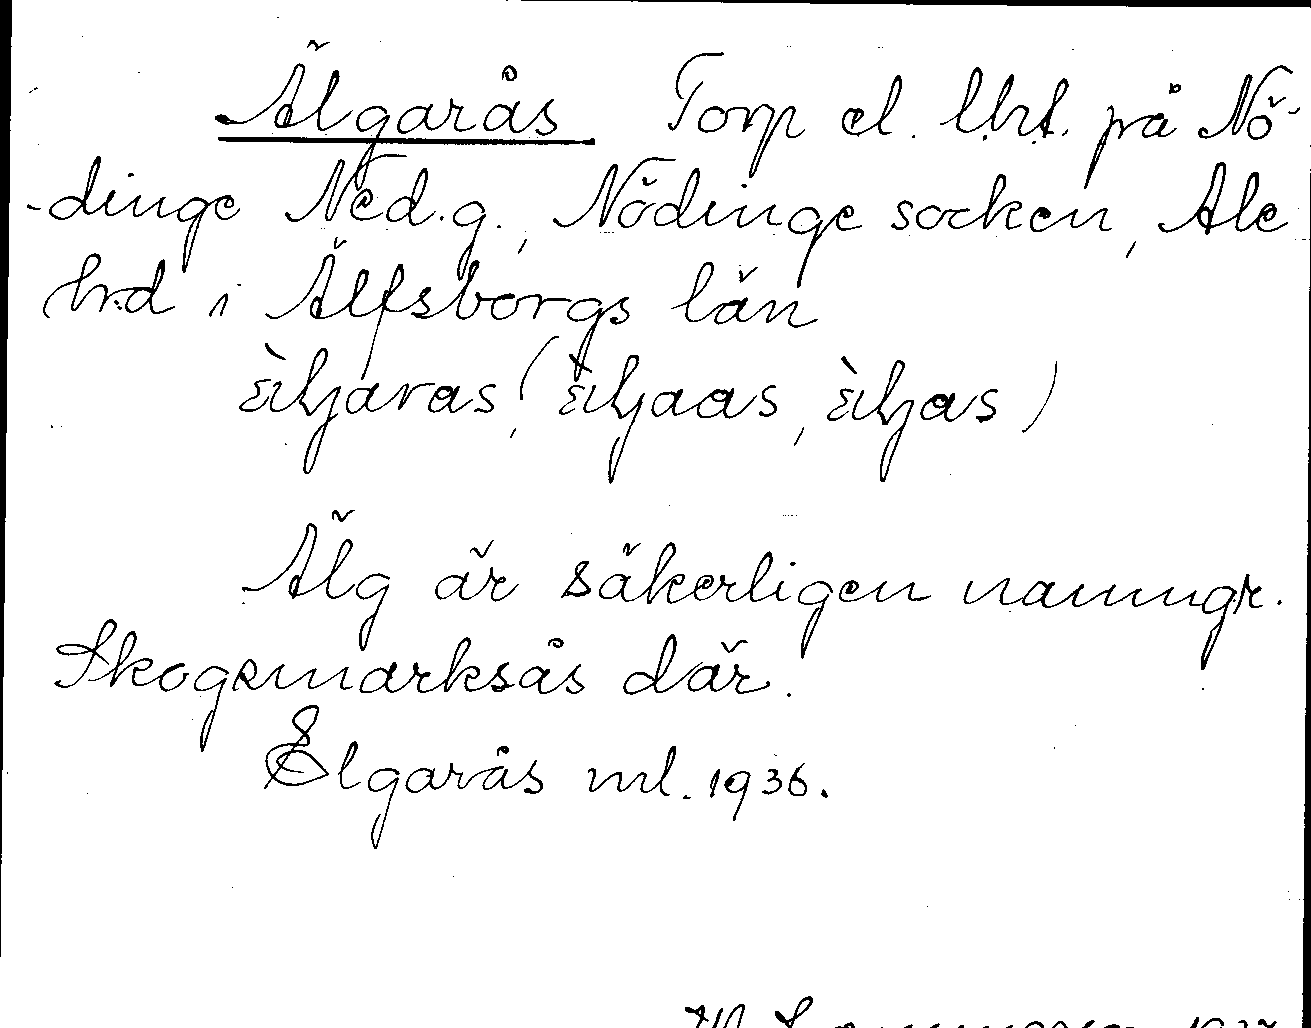 Älgarås Torp el. lht. på Nö-
-dinge Ned.g., Nödinge socken, Ale
hrd i Älfsborgs län
Älg är säkerligen namngr.
Skogsmarksås där.
Elgarås ml. 1936.